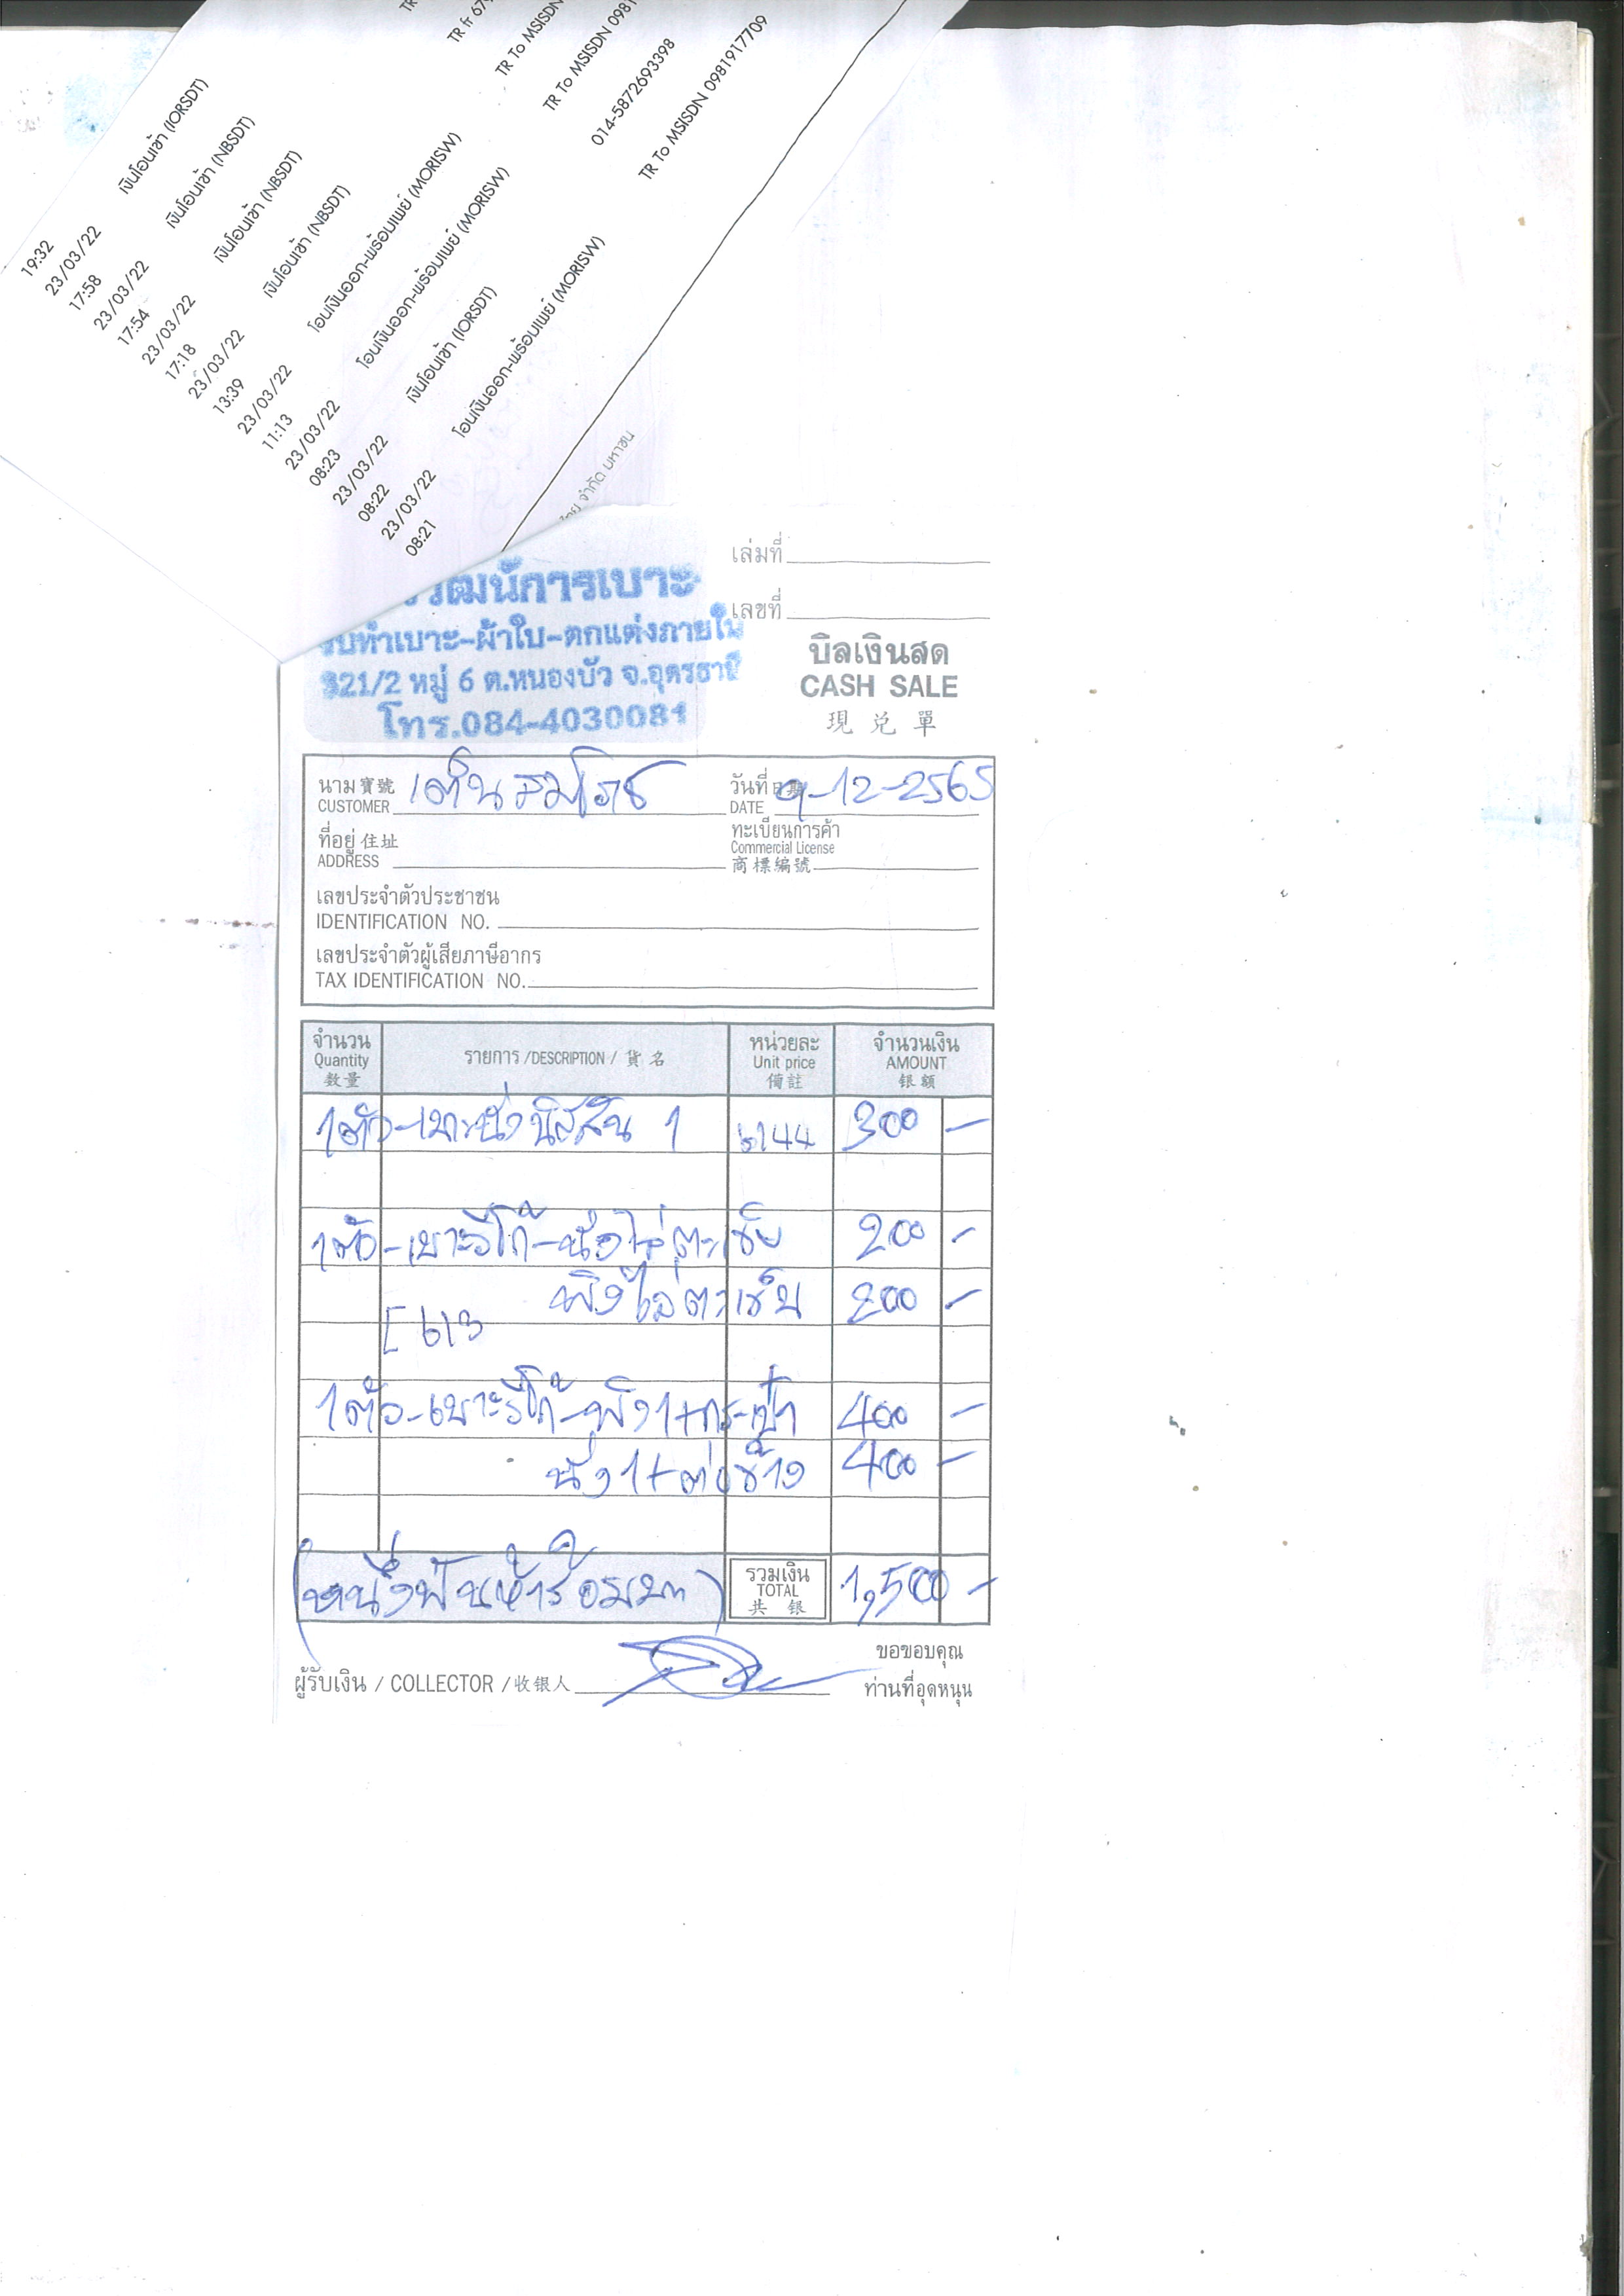 19:32
23/03/22 เงินโอนเข้า (IORSDT)
17:58
23/03/22 เงินโอนเข้า (NBSDT)
17:54
23/03/22 เงินโอนเข้า (NBSDT)
17:18
23/03/22 เงินโอนเข้า (NBSDT)
13:39
23/03/22 โอนเงินออก-พร้อมเพย์ (MORISW) TR To MSISDN
11:13
23/03/22 โอนเงินออก-พร้อมเพย์ (MORISW) TR To MSISDN
08:23
23/03/22 เงินโอนเข้า (IORSDT) 014-5872693398
08:22
23/03/22 โอนเงินออก-พร้อมเพย์ (MORISW) TR To MSISDN 0981917709
08:21
จำกัด มหาชน
วัฒน์การเบาะ
รับทำเบาะ-ผ้าใบ-ตกแต่งภายใน
321/2 หมู่ 6 ต.หนองบัว จ.อุดรธานี
โทร.084-4030081
เล่มที่
เลขที่
บิลเงินสด
CASH SALE
現兌單
นาม寶號
CUSTOMER
วันที่日期
DATE 9-12-2565
ที่อยู่住址
ADDRESS
ทะเบียนการค้า
Commercial License
商標編號
เลขประจำตัวประชาชน
IDENTIFICATION NO.
เลขประจำตัวผู้เสียภาษีอากร
TAX IDENTIFICATION NO.
จำนวน Quantity 数量 รายการ /DESCRIPTION / 貨名 หน่วยละ Unit price 備註 จำนวนเงิน AMOUNT 银额
1ตัว-เบาะนั่งนิสสัน 1 300 -
1ตัว-เบาะวีโก้-นั่งไล่ตะเข็บ 200 -
พิงไล่ตะเข็บ 200 -
1ตัว-เบาะวีโก้-พิง1+กระเป๋า 400 -
นั่ง1+ต่อข้าง 400 -
(หนึ่งพันห้าร้อยบาท) รวมเงิน TOTAL 共银 1,500 -
ผู้รับเงิน / COLLECTOR /收银人
ขอขอบคุณ
ท่านที่อุดหนุน